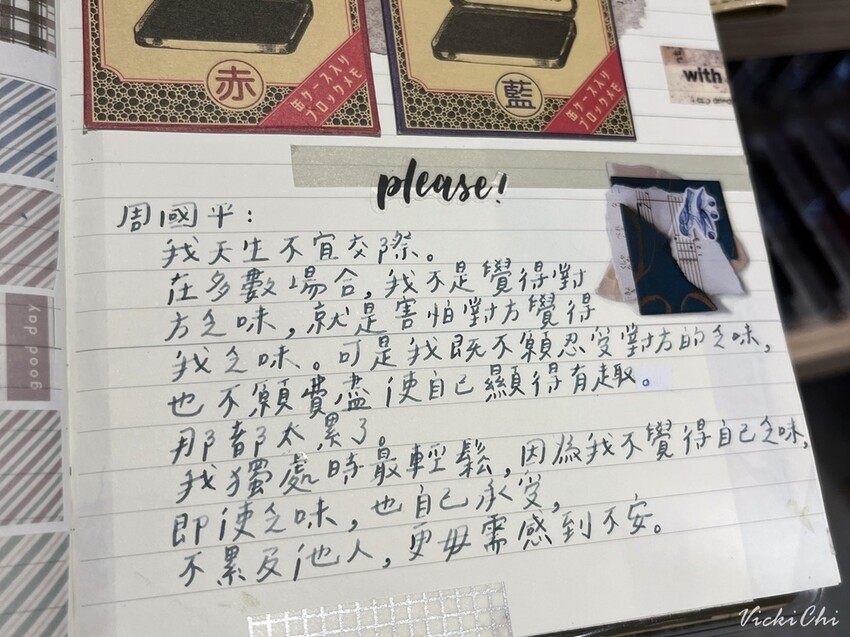 赤
缶ケース入り
ブロックメモ
藍
缶ケース入り
ブロックメモ
with
please!
周國平：
我天生不宜交際。
在多數場合，我不是覺得對
方乏味，就是害怕對方覺得
我乏味。可是我既不願忍受對方的乏味，
也不願費盡使自己顯得有趣。
那都太累了。
我獨處時最輕鬆，因為我不覺得自己乏味，
即使乏味，也自己承受，
不累及他人，更毋需感到不安。
good day
VickiChi